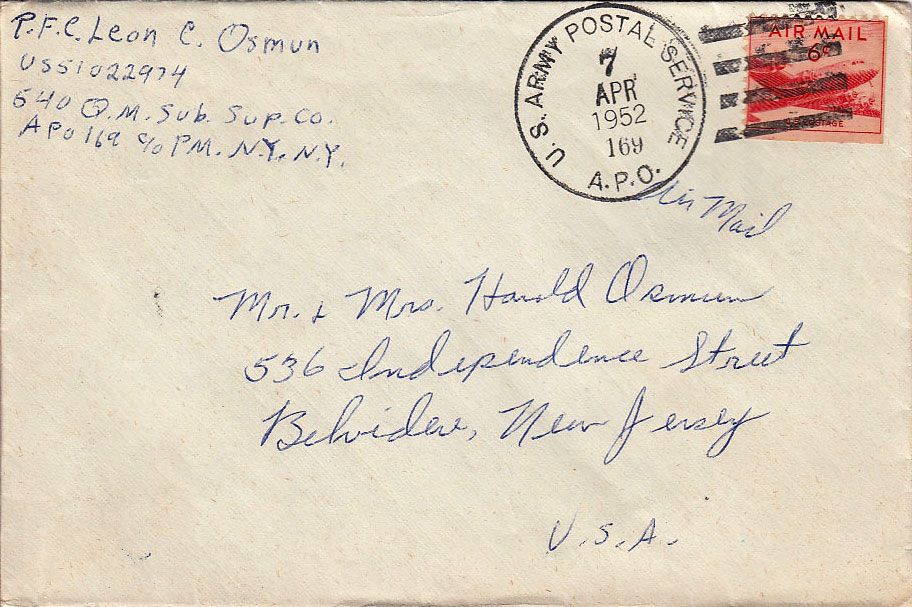 P.F.C. Leon C. Osmun
US51022974
540 Q.M. Sub. Sup. Co.
APO 169 c/o P.M. N.Y. N.Y.
U.S. ARMY POSTAL SERVICE
7
APR
1952
169
A.P.O.
AIR MAIL
6¢
POSTAGE
Air Mail
Mr. & Mrs. Harold Osmun
536 Independence Street
Belvidere, New Jersey
U.S.A.